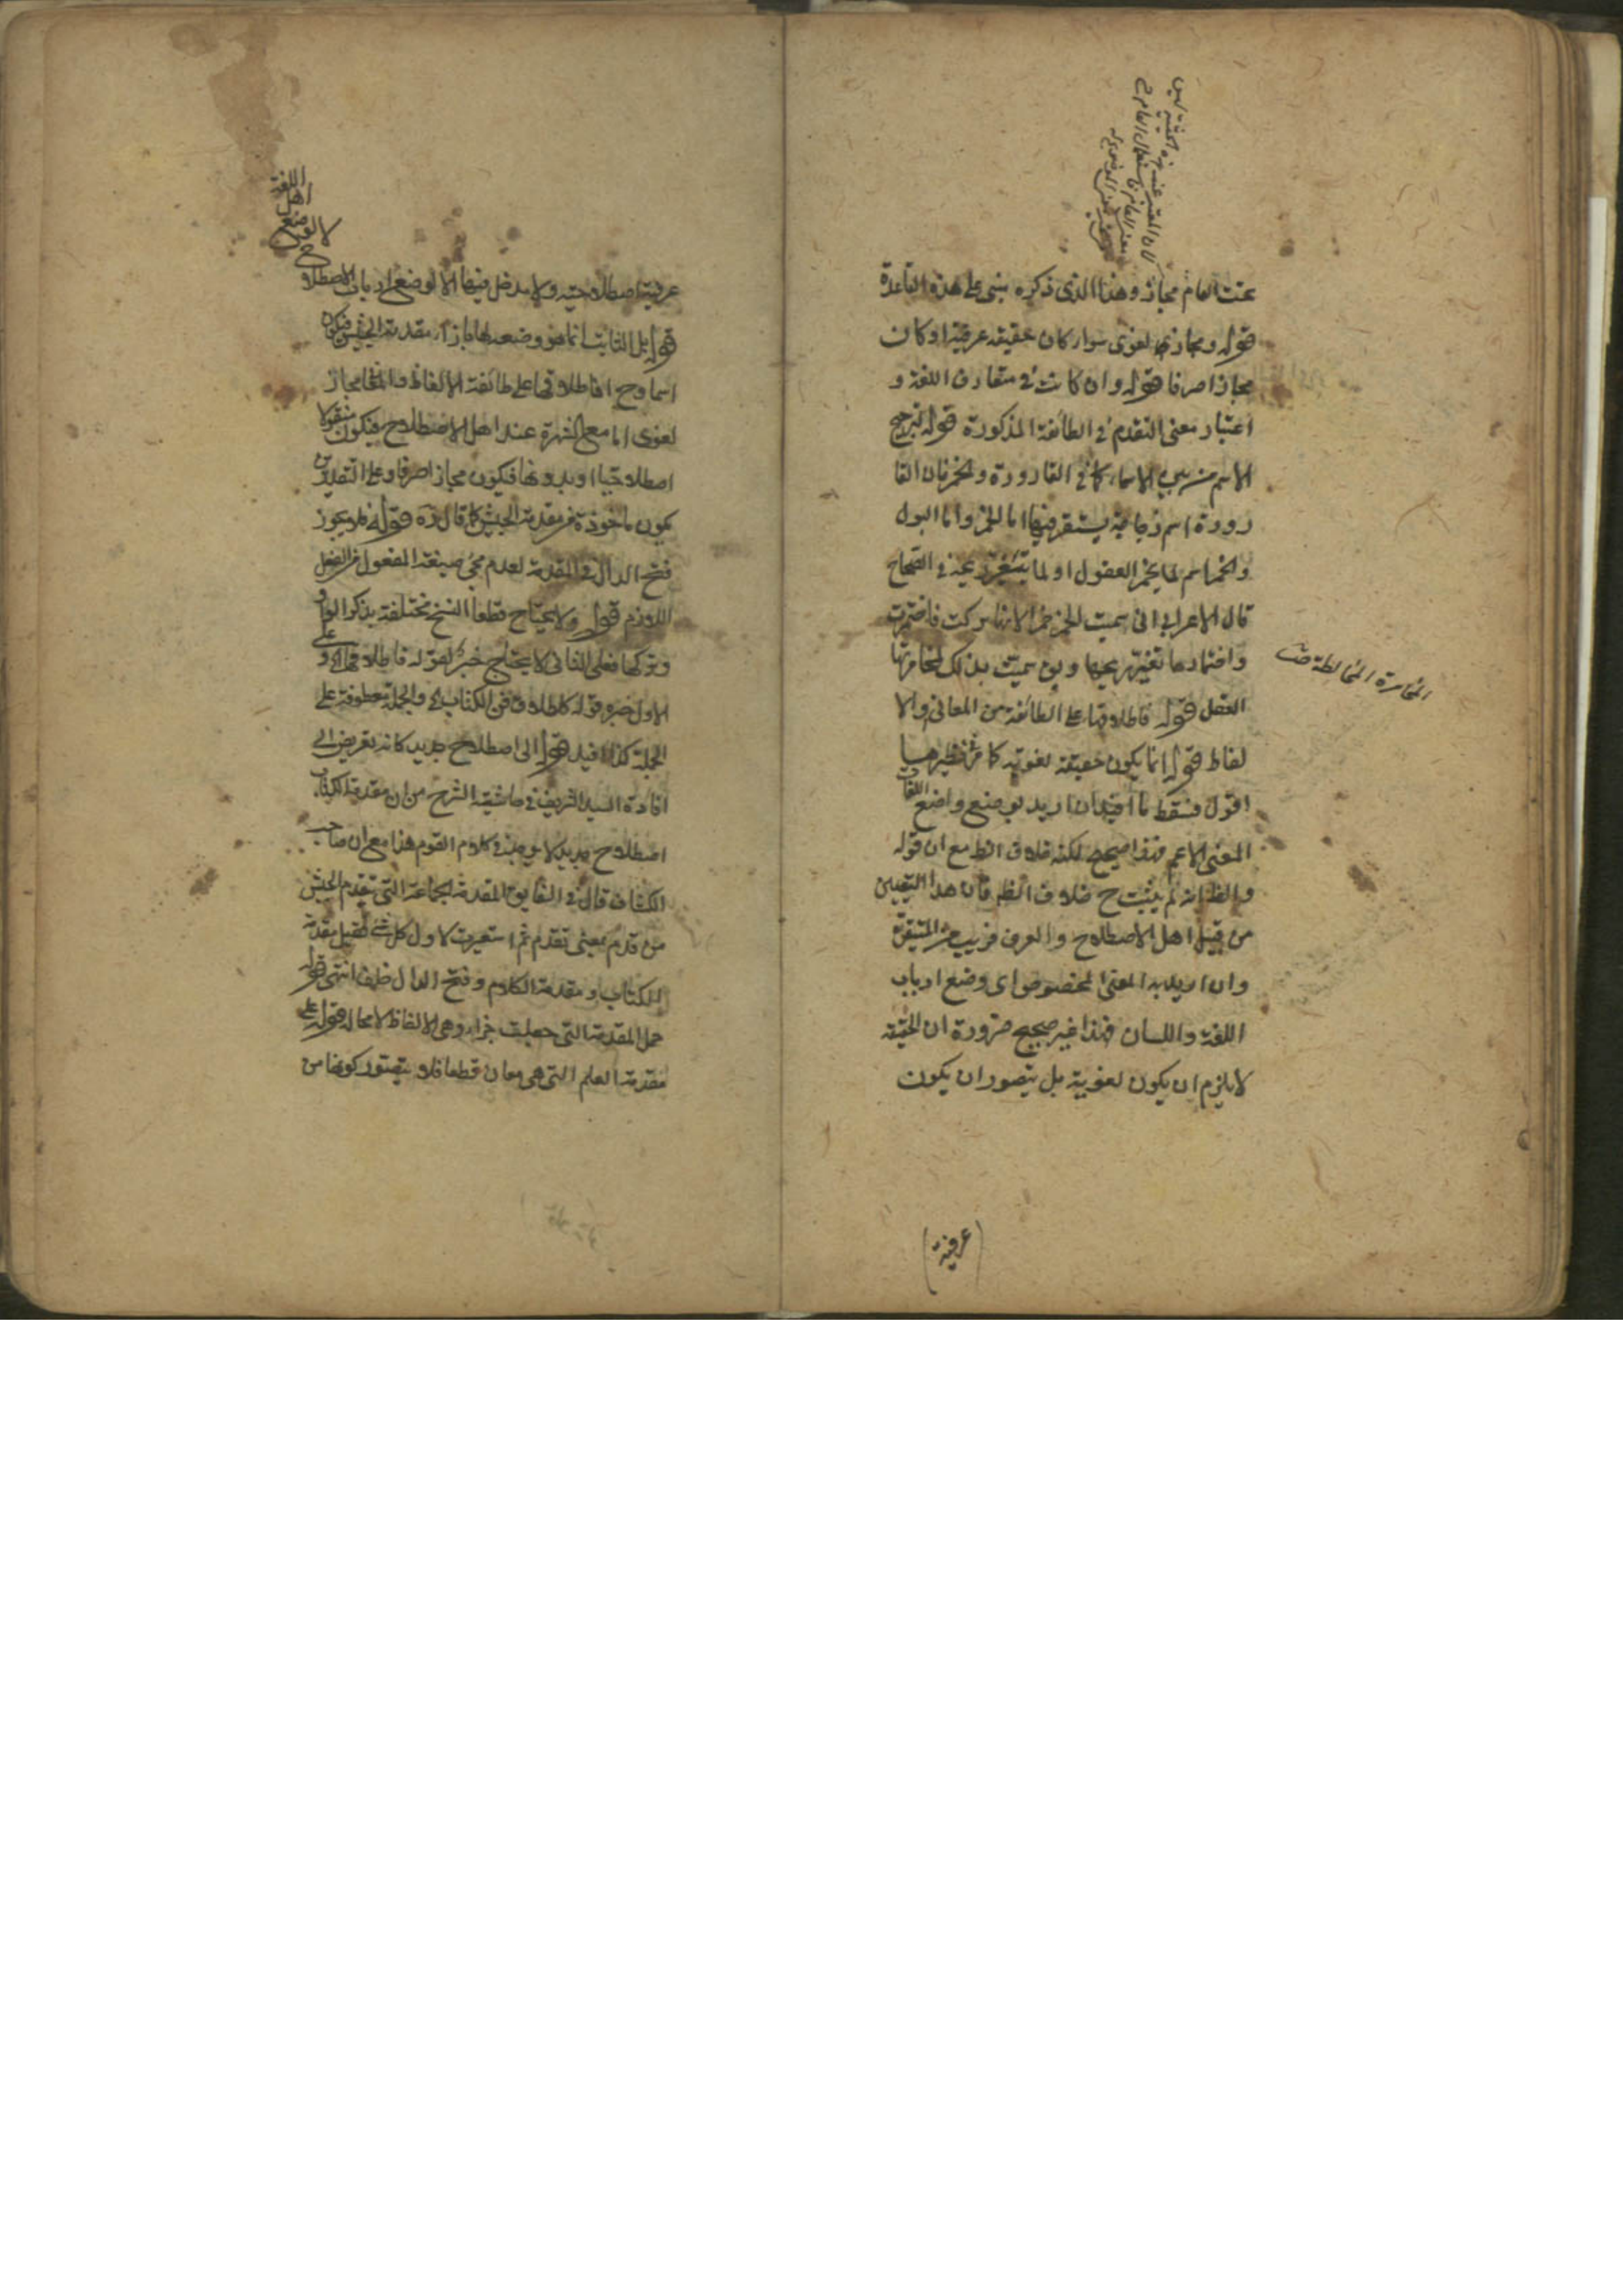 تحت العام مجاز وهذا الذى ذكره يبنى على هذه القاعدة
قوله ومجاز لغوى سواء كان حقيقة عرفية او كان
مجازا صرفا قوله وان كانت فى متعارف اللغة و
اعتبار معنى التقدم فى الطائفة المذكورة قوله لترجيح
الاسم من بين الاسماء كما فى القارورة والخمر فان القا
رورة اسم زجاجة يستقر فيها اما الخمر واما البول
والخمر اسم لما يخمر العقول او لما يتغير ريحه فى الصحاح
قال الاعرابى سميت الخمر خمرا لانها تركت فاختمرت
واختمارها تغير ريحها ويق سميت بذلك لمخامرتها
العقل قوله فاطلاقها على الطائفة من المعانى والا
لفاظ قوله انما يكون حقيقة لغوية كما مر نظيرهما
اقول فسقط ما افيد ان اريد بوضع واضع اللغات
المعنى الاعم فهذا صحيح لكنه خلاف الظ مع ان قوله
والظ انه لم يثبت ح خلاف الظ فان هذا التعيين
من قبل اهل الاصطلاح والعرف قريب من المتيقن
وان اريد به المعنى المخصوص اى وضع ارباب
اللغة واللسان فهذا غير صحيح ضرورة ان الحقيقة
لا يلزم ان يكون لغوية بل يتصور ان يكون
المخامرة المخالطة
(عرفية)
لا لوضع
اهل
اللغة
عرفية اصطلاحية ولا مدخل فيها الا لوضع ارباب الاصطلاح
قوله بل الثابت انما هو وضعه لها بازاء مقدمة الجيش فيكون
اسما وح اما اطلاقها على طائفة الالفاظ والمعا مجاز
لغوى اما مع الشهرة عند اهل الاصطلاح فيكون منقولا
اصطلاحيا او بدونها فيكون مجازا صرفا وعلى التقديرين
يكون ماخوذة من مقدمة الجيش كما قال ره قوله فلا يجوز
فتح الدال فى المقدمة لعدم مجئ صيغة المفعول من الفعل
اللازم قوله ولا يحتاج قطعا النسخ مختلفة بذكر الواو
وتركها فعلى الثانى لا يحتاج خبر لقوله فاطلاقها وعلى
الاول خبره قوله كاطلاق الكتاب والجملة معطوفة على
الجملة كذا افيد قوله الى اصطلاح جديد كانه تعريض الى
افادة السيد الشريف فى حاشية الشرح من ان مقدمة الكتاب
اصطلاح جديد لا يوجد فى كلام القوم هذا مع ان صاحب
الكشاف قال فى الفايق المقدمة الجماعة التى تتقدم الجيش
من قدم بمعنى تقدم ثم استعيرت لاول كل شئ فقيل مقدمة
للكتاب ومقدمة الكلام وفتح الدال خلف انتهى قوله
حمل المقدمة التى جعلت جزاء وهى الالفاظ لا محالة قوله على
مقدمة العلم التى هى معان قطعا فلا يتصور كونها من